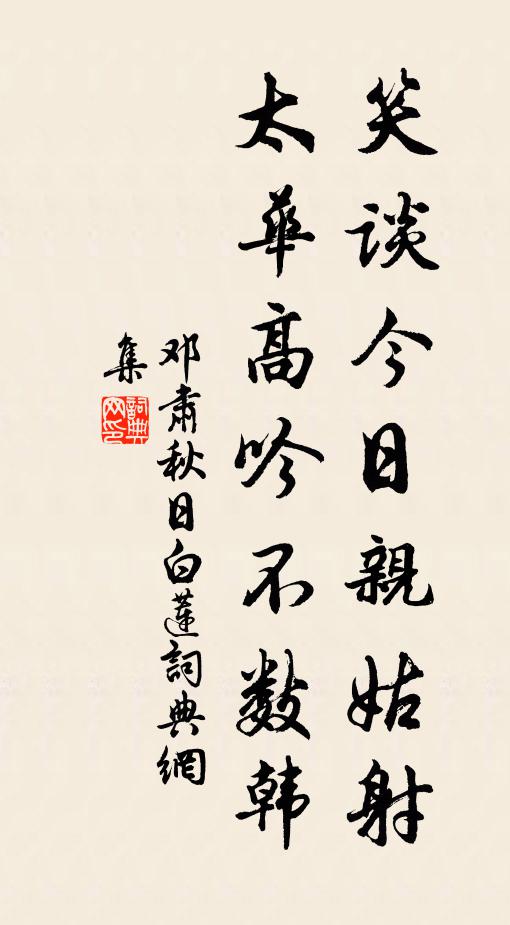 笑谈今日親姑射
太華高吟不数韩
邓肅秋日白蓮詞典網
集
詞典网印